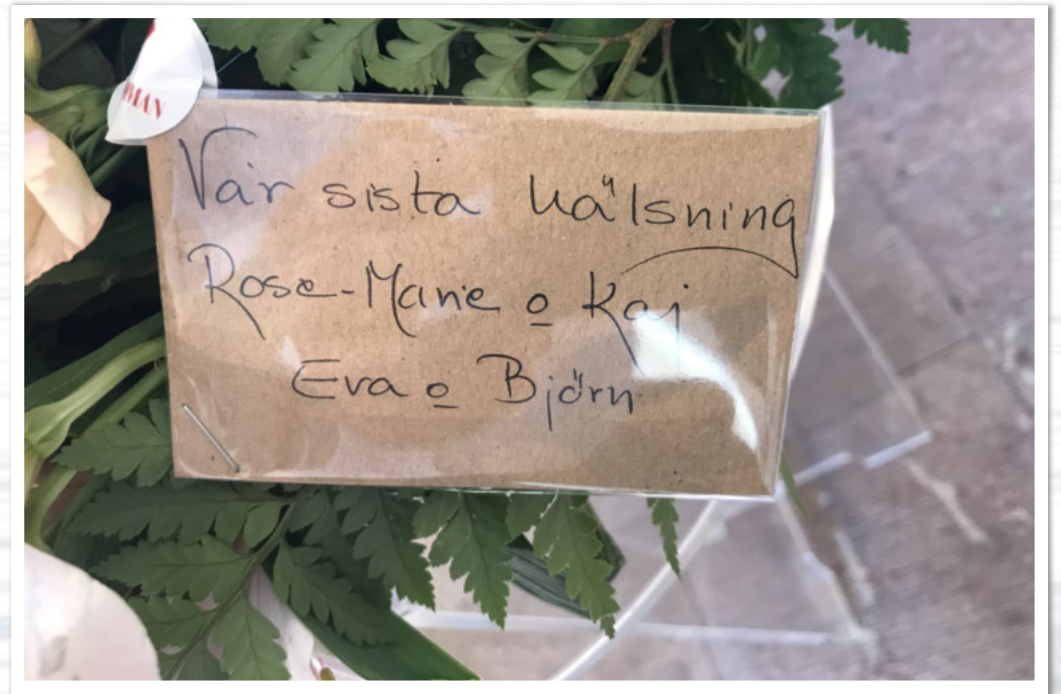 MAN
Vår sista hälsning
Rose-Marie o Kaj
Eva o Björn